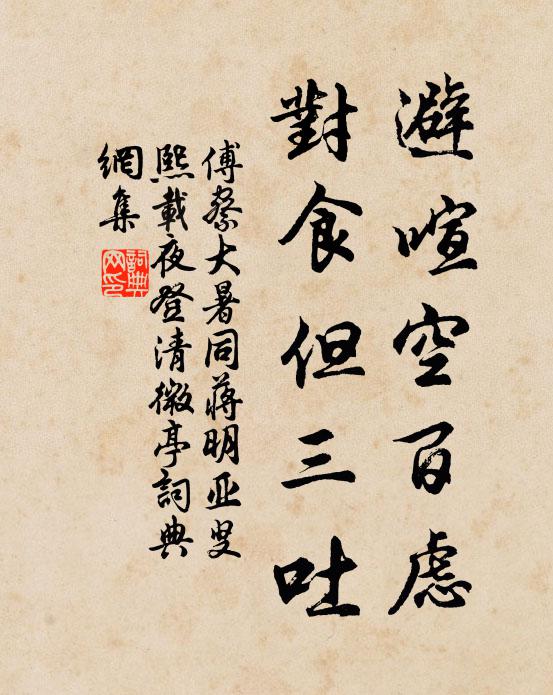 避喧空百慮
對食但三吐
傅察大暑同蔣明亚叟
熙載夜登清微亭詞典
網集
詞典
网印